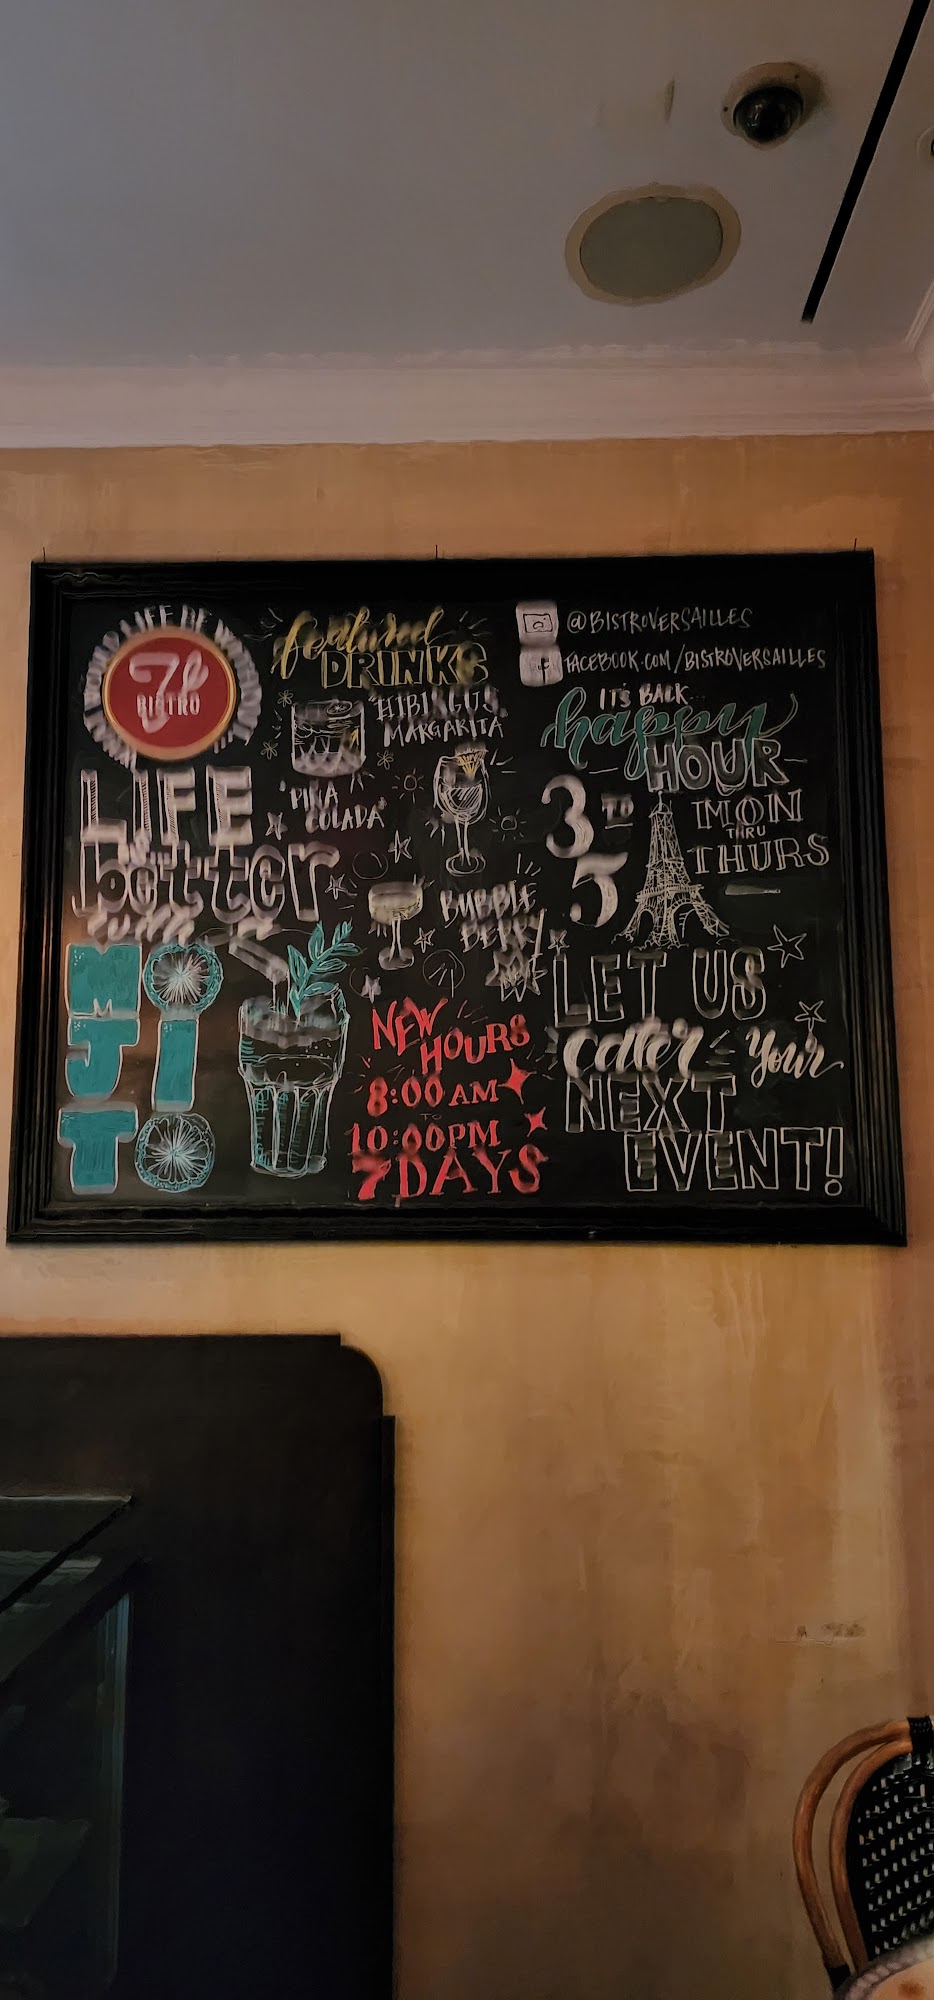 BISTRO
LIFE
better
with
MOJITO
featured
DRINKS
"HIBISCUS
MARGARITA"
"PIÑA
COLADA"
BUBBLE
BERRY
NEW
HOURS
8:00 AM
TO
10:00PM
7 DAYS
@BISTROVERSAILLES
FACEBOOK.COM/BISTROVERSAILLES
IT'S BACK...
happy
HOUR
3 TO 5
MON
THRU
THURS
LET US
cater your
NEXT
EVENT!